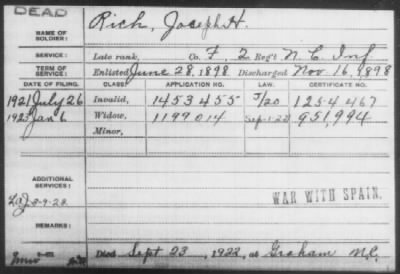 DEAD
Rich, Joseph H.
NAME OF SOLDIER:
SERVICE: Late rank, Co. F, 2 Regt N. C. Inf
TERM OF SERVICE: Enlisted June 28, 1898 Discharged Nov 16, 1898
DATE OF FILING. CLASS. APPLICATION NO. LAW. CERTIFICATE NO.
1921 July 26 Invalid, 1453455 5/20 1254467
1923 Jan 6 Widow, 1199014 Sep 1-22 951,994
Minor,
ADDITIONAL SERVICES:
WAR WITH SPAIN.
REMARKS:
Died Sept 23, 1922, at Graham N.C.